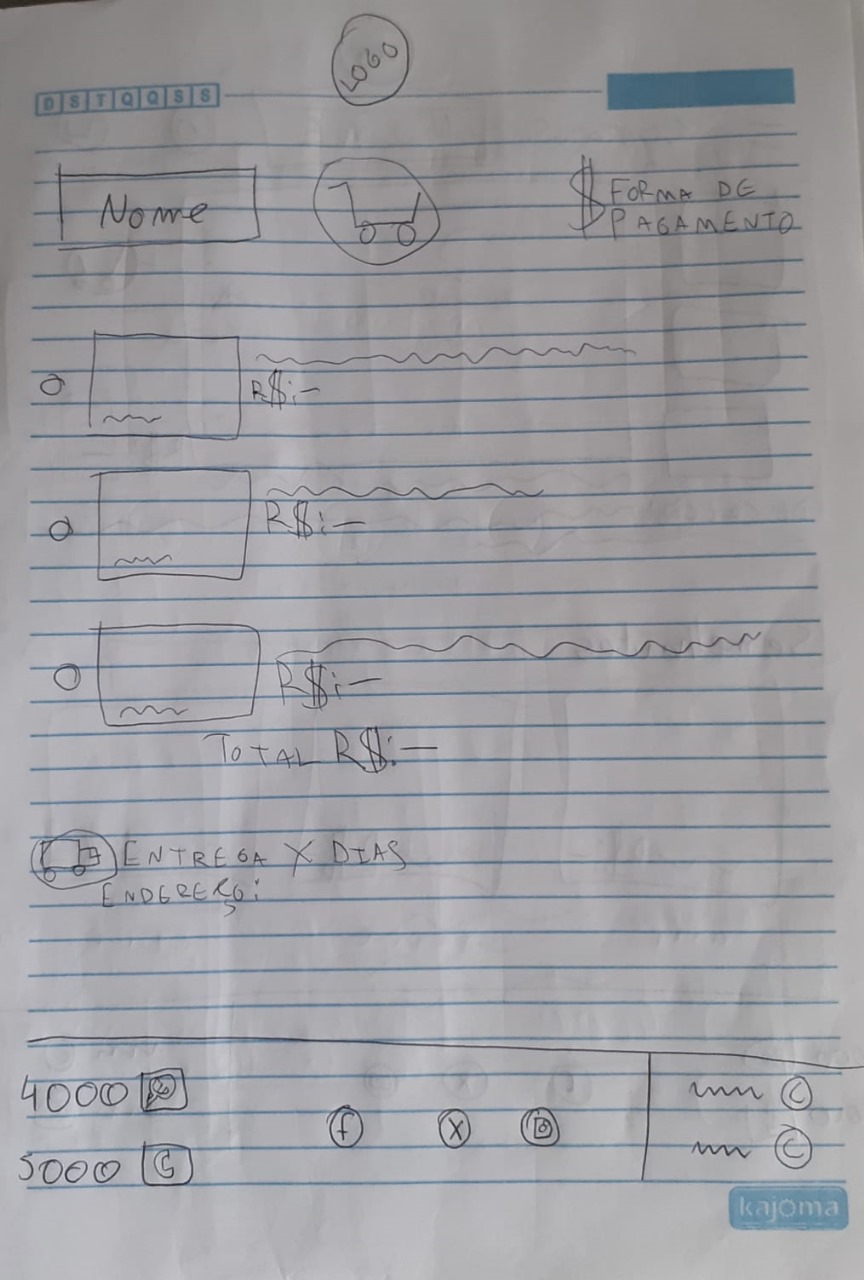 LOGO
D S T Q Q S S
Nome
$ FORMA DE
PAGAMENTO
R$:-
R$:-
R$:-
TOTAL R$:-
ENTREGA X DIAS
ENDEREÇO:
4000
5000
f X
C
C
kajoma